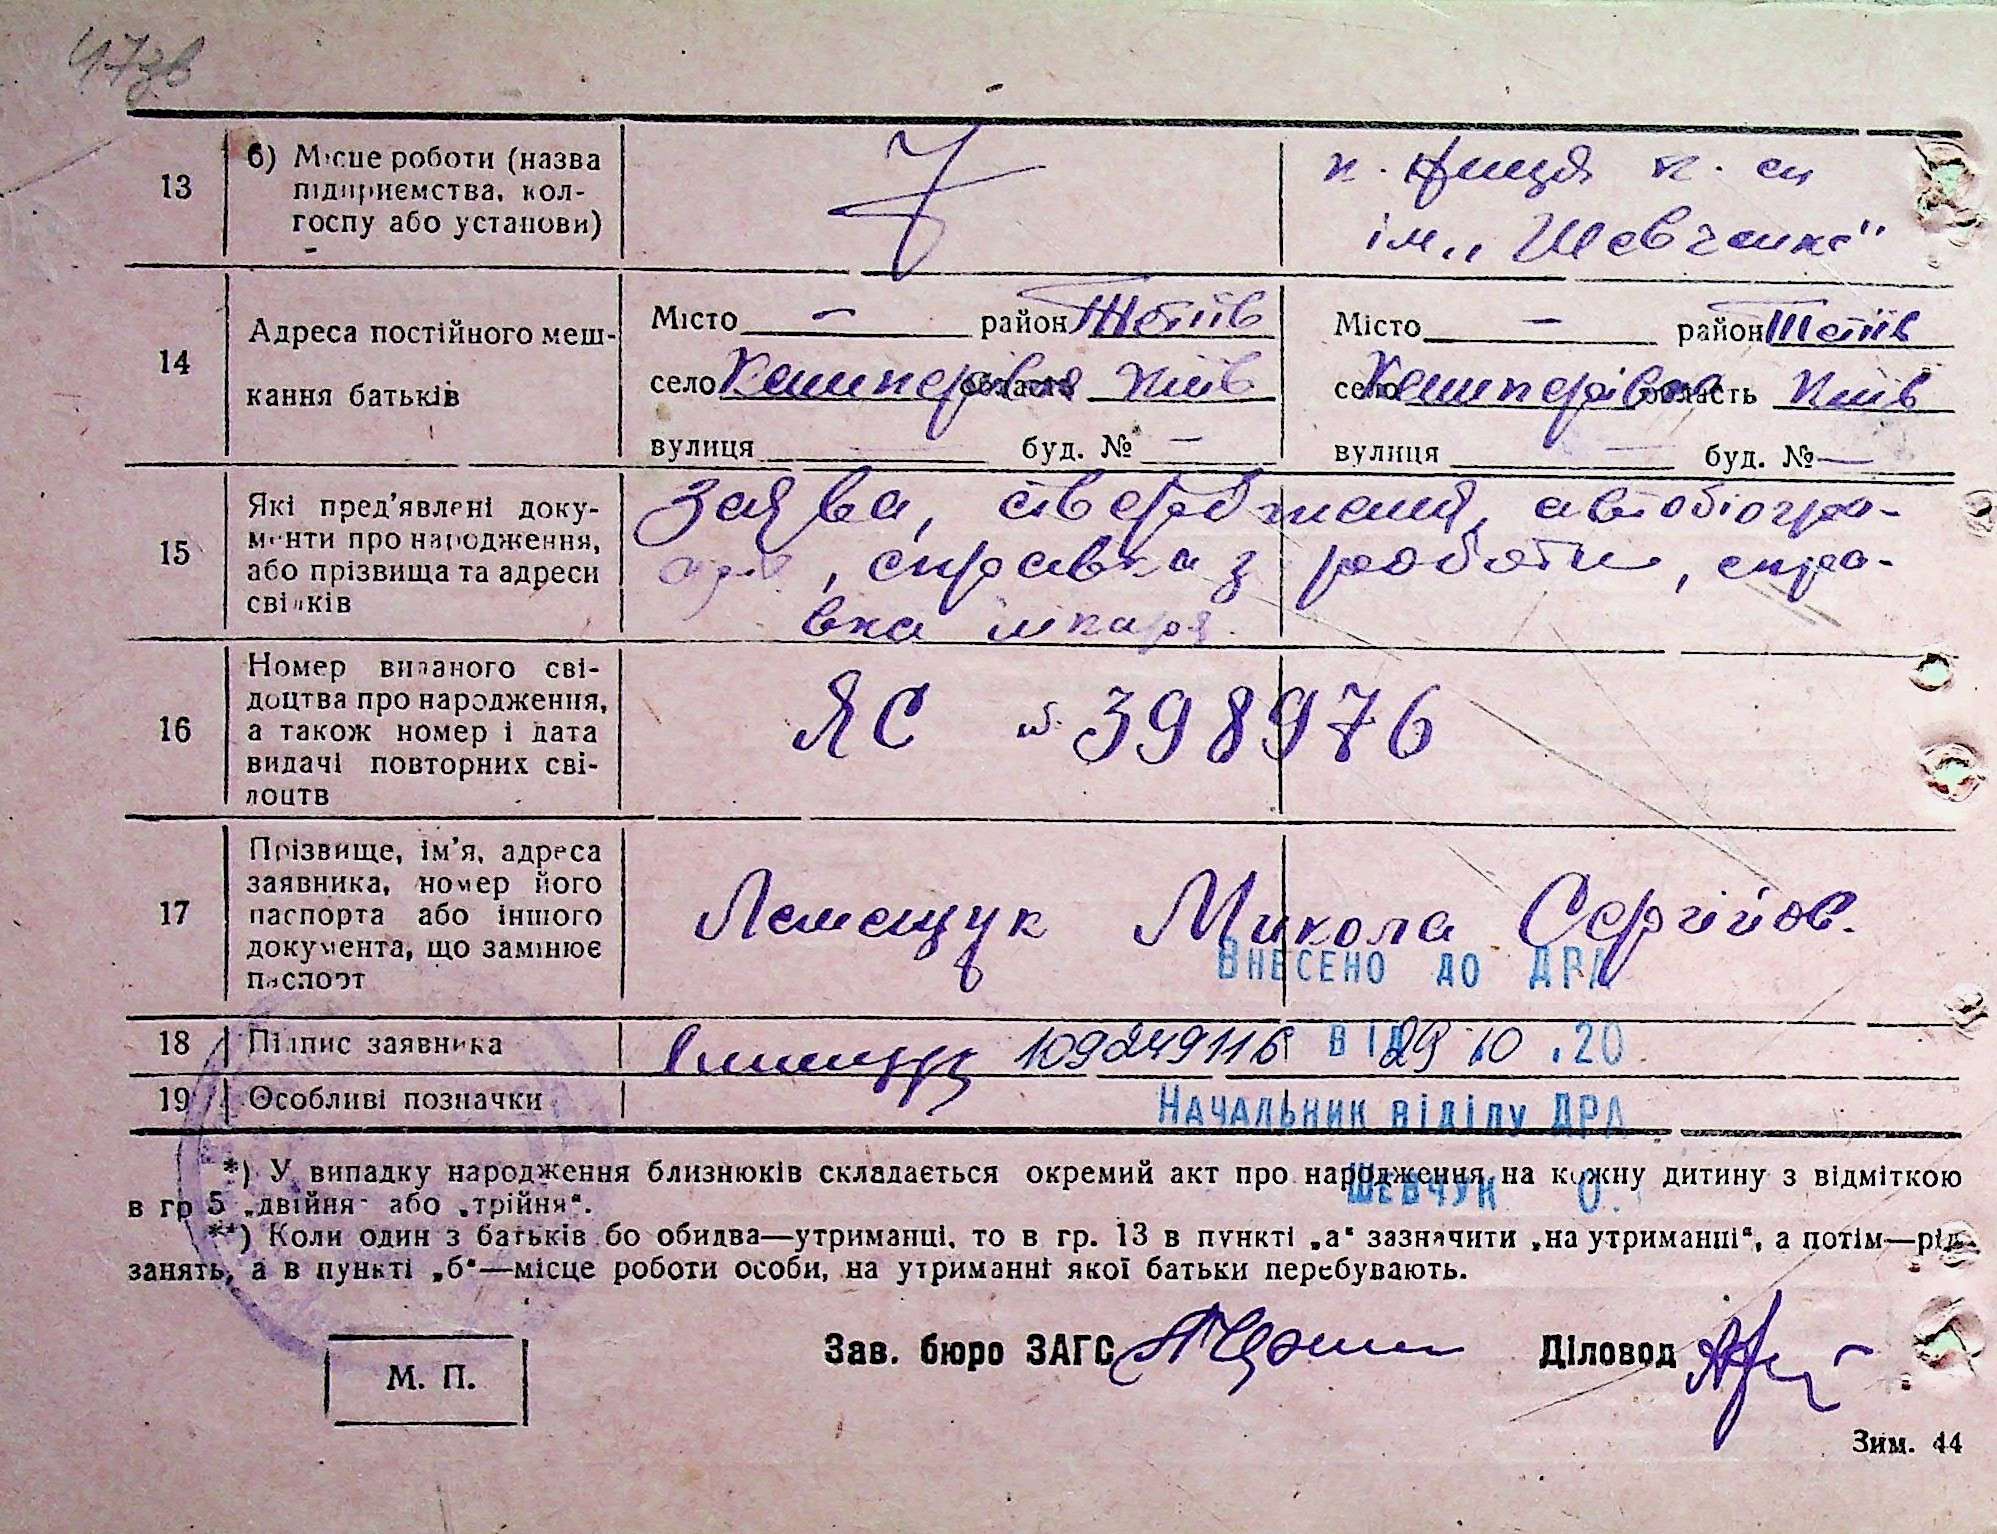 47зв
13 б) Місце роботи (назва підприємства, колгоспу або установи)
к.
ім. „Шевченка"
14 Адреса постійного меш-
кання батьків
Місто — район Тетіїв
село Кашперівка область Київ
вулиця буд. № —
Місто — район Тетіїв
село Кашперівка область Київ
вулиця — буд. № —
15 Які пред'явлені доку-
менти про народження,
або прізвища та адреси
свідків
Заява, ствердження, автобіогра-
фія, справка з роботи, спра-
вка лікаря
16 Номер виданого сві-
доцтва про народження,
а також номер і дата
видачі повторних сві-
доцтв
ЯС № 398976
17 Прізвище, ім'я, адреса
заявника, номер його
паспорта або іншого
документа, що замінює
паспорт
Лемещук Микола Сергійов.
ВНЕСЕНО ДО ДРА
18 Підпис заявника
109249116 ВІД 29 10 .20
19 Особливі позначки
НАЧАЛЬНИК ВІДІЛУ ДРА
*) У випадку народження близнюків складається окремий акт про народження на кожну дитину з відміткою
в гр 5 „двійня" або „трійня".
ШЕВЧУК О.
**) Коли один з батьків бо обидва—утриманці, то в гр. 13 в пункті „а" зазначити „на утриманні", а потім—рід
занять, а в пункті „б"—місце роботи особи, на утриманні якої батьки перебувають.
Зав. бюро ЗАГС
Діловод
М. П.
Зим. 44